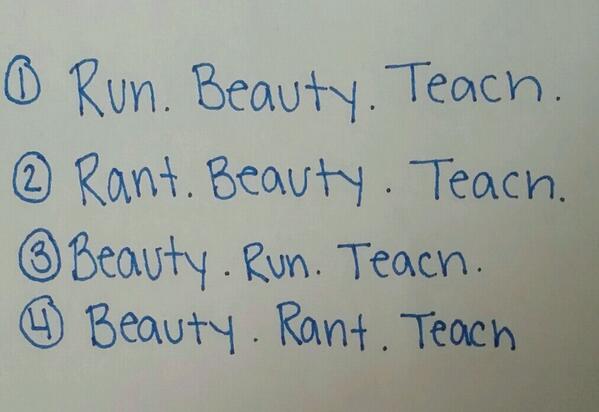 ① Run. Beauty. Teach.
② Rant. Beauty. Teach.
③ Beauty. Run. Teach.
④ Beauty. Rant. Teach